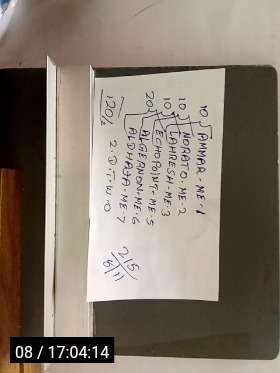 10 AMMAR-ME-1
10 NORATO-ME-2
10 LAHRESH-ME-3
ECHOPOINT-ME-5
20 ALGERNON-ME-6
ALDHALIA-ME-7
120/2
2.D.T.W.O
215
5/11
08 / 17:04:14